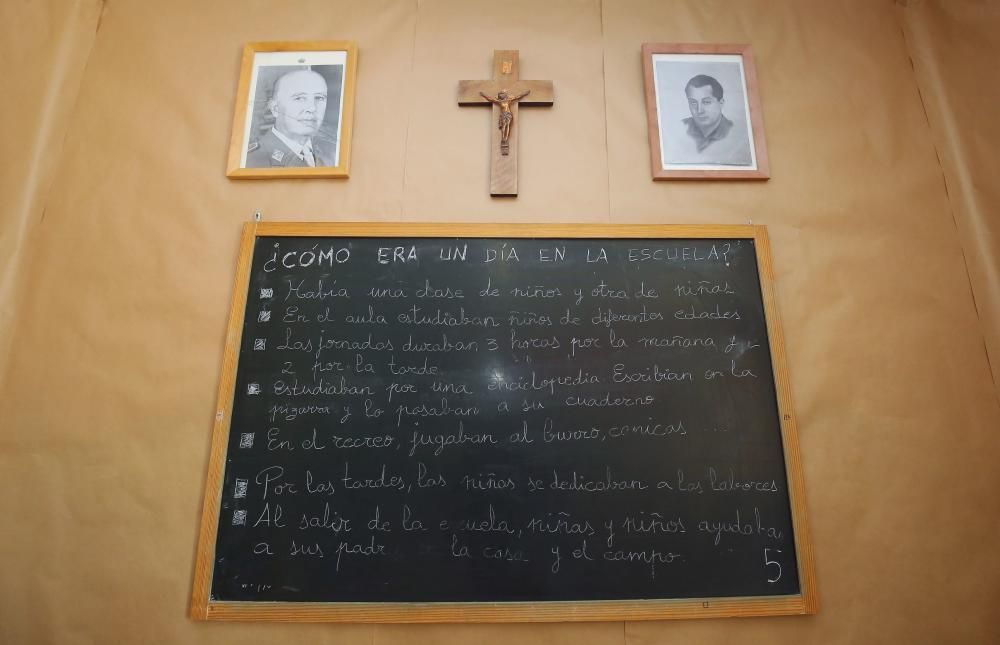 ¿CÓMO ERA UN DÍA EN LA ESCUELA?
Había una clase de niños y otra de niñas
En el aula estudiaban niños de diferentes edades
Las jornadas duraban 3 horas por la mañana y
2 por la tarde.
Estudiaban por una enciclopedia. Escribían en la
pizarra y lo pasaban a su cuaderno
En el recreo, jugaban al burro, canicas ...
Por las tardes, las niñas se dedicaban a las labores
Al salir de la escuela, niñas y niños ayudaba
a sus padr la casa y el campo.
5